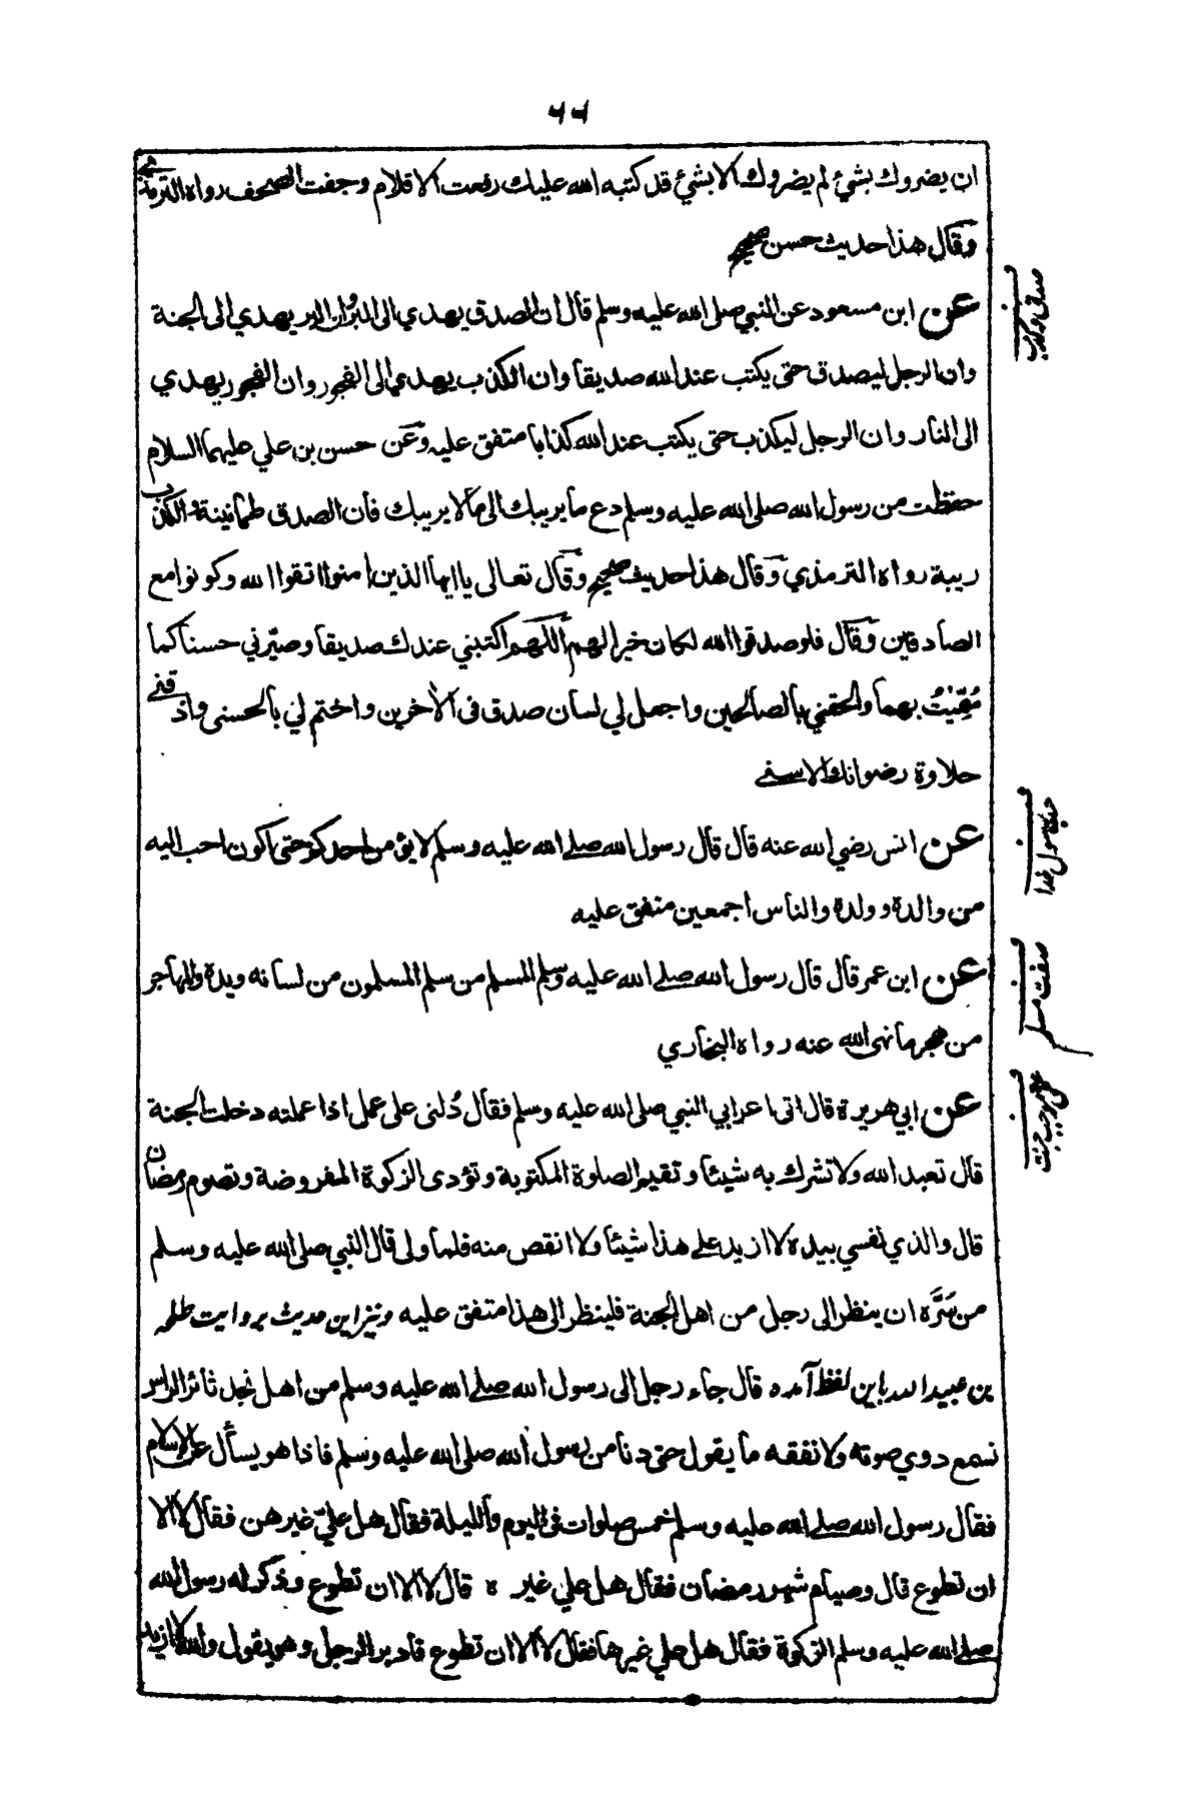 ٤٤
ان يضروك بشئ لم يضروك الا بشئ قد كتبه الله عليك رفعت الاقلام وجفت الصحف رواه الترمذي
وقال هذا حديث حسن صحيح
عن ابن مسعود عن النبي صلى الله عليه وسلم قال ان الصدق يهدي الى البر وان البر يهدي الى الجنة
وان الرجل ليصدق حتى يكتب عند الله صديقا وان الكذب يهدي الى الفجور وان الفجور يهدي
الى النار وان الرجل ليكذب حتى يكتب عند الله كذابا متفق عليه وعن حسن بن علي عليهما السلام
حفظت من رسول الله صلى الله عليه وسلم دع ما يريبك الى ما لا يريبك فان الصدق طمانينة والكذب
ريبة رواه الترمذي وقال هذا حديث صحيح وقال تعالى يا ايها الذين امنوا اتقوا الله وكونوا مع
الصادقين وقال فلو صدقوا الله لكان خيرا لهم اللهم اكتبني عندك صديقا وصيّرني حسنا كما
سُمِّيْتُ بهما والحقني بالصالحين واجعل لي لسان صدق فى الآخرين واختم لي بالحسنى واذقني
حلاوة رضوانك الاسنى
عن انس رضي الله عنه قال قال رسول الله صلى الله عليه وسلم لا يؤمن احدكم حتى اكون احب اليه
من والده وولده والناس اجمعين متفق عليه
عن ابن عمر قال قال رسول الله صلى الله عليه وسلم المسلم من سلم المسلمون من لسانه ويده والمهاجر
من هجر ما نهى الله عنه رواه البخاري
عن ابي هريرة قال اتى اعرابي النبي صلى الله عليه وسلم فقال دُلنى على عمل اذا عملته دخلت الجنة
قال تعبد الله ولا تشرك به شيئا وتقيم الصلوة المكتوبة وتؤدى الزكوة المفروضة وتصوم رمضان
قال والذي نفسي بيده لا ازيد على هذا شيئا ولا انقص منه فلما ولى قال النبي صلى الله عليه وسلم
من سَرَّه ان ينظر الى رجل من اهل الجنة فلينظر الى هذا متفق عليه ونيز اين حديث بروايت طلحه
بن عبيد الله باين لفظ آمده قال جاء رجل الى رسول الله صلى الله عليه وسلم من اهل نجد ثائر الراس
نسمع دوي صوته ولا نفقه ما يقول حتى دنا من رسول الله صلى الله عليه وسلم فاذا هو يسأل عن الاسلام
فقال رسول الله صلى الله عليه وسلم خمس صلوات فى اليوم والليلة فقال هل عليّ غيرهن فقال لا الا
ان تطوع قال وصيام شهر رمضان فقال هل علي غيره قال لا الا ان تطوع وذكر له رسول الله
صلى الله عليه وسلم الزكوة فقال هل علي غيرها فقال لا الا ان تطوع فادبر الرجل وهو يقول والله لا ازيد
صدق وكذب
حب رسول خدا
صفت مسلم